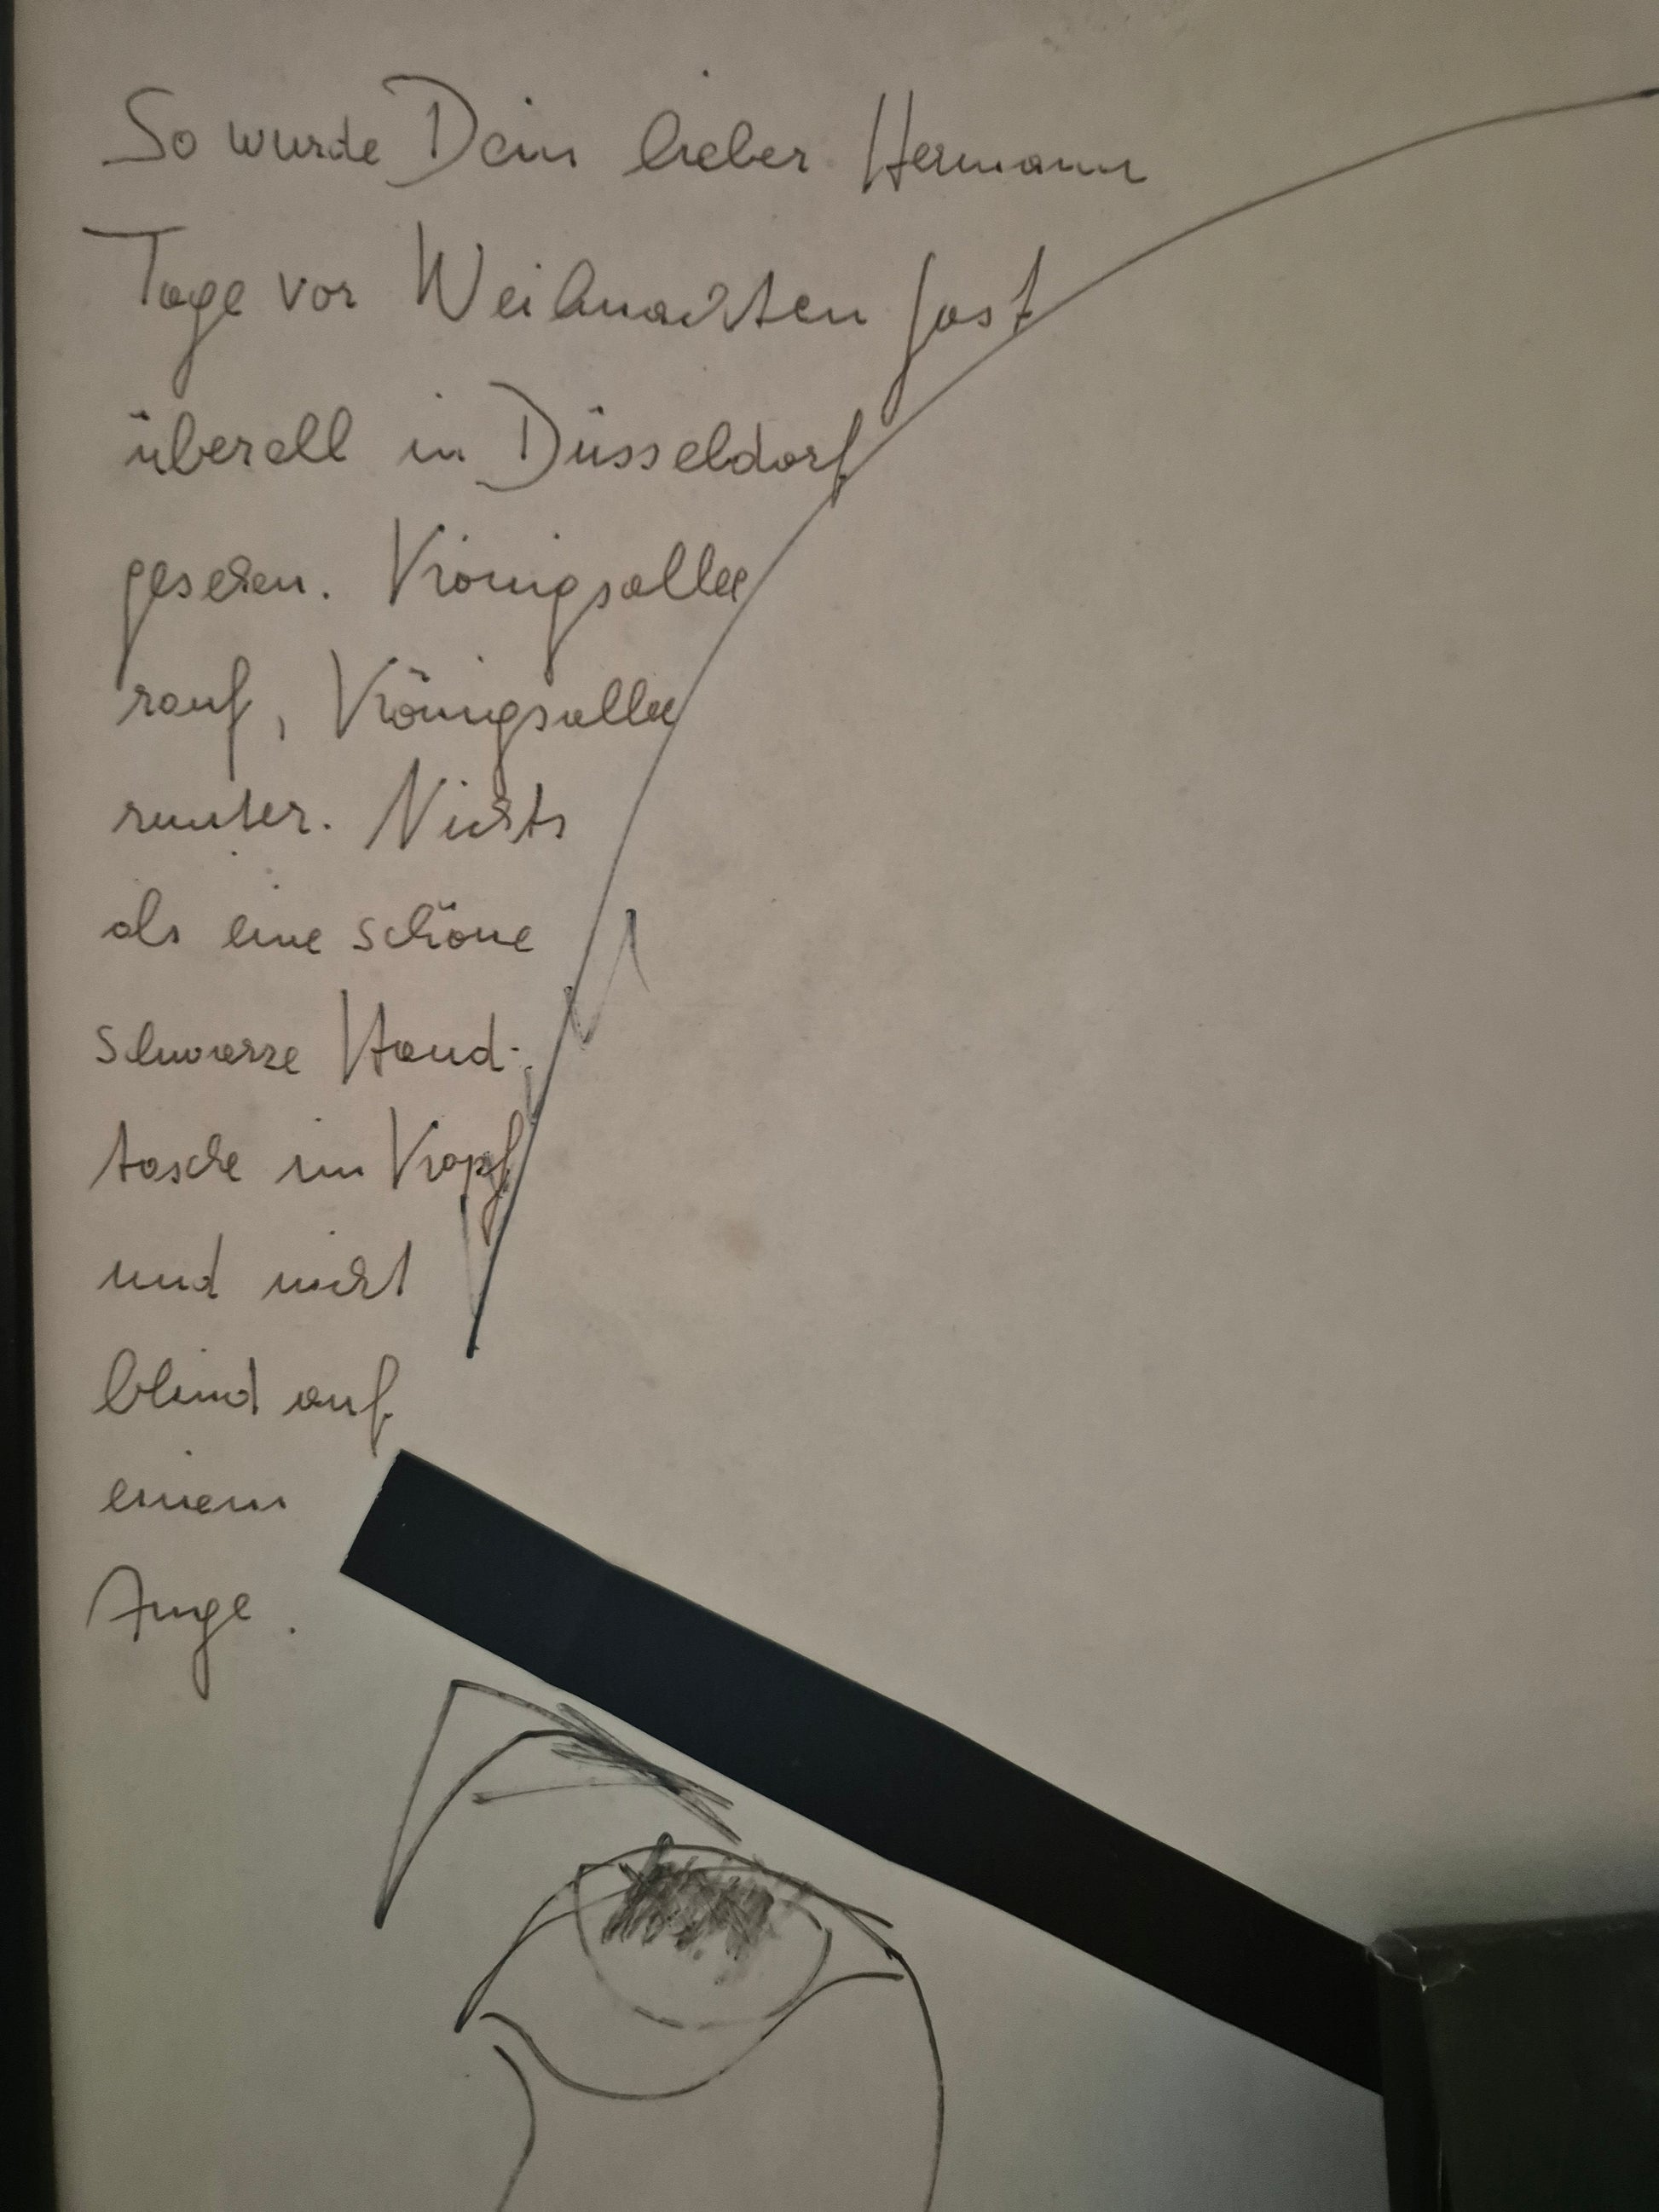 So wurde Dein lieber Hermann
Tage vor Weihnachten fast
überall in Düsseldorf
gesehen. Königsallee
rauf, Königsallee
runter. Nichts
als eine schöne
schwarze Hand-
tasche im Kopf
und nicht
blind auf
einem
Auge.